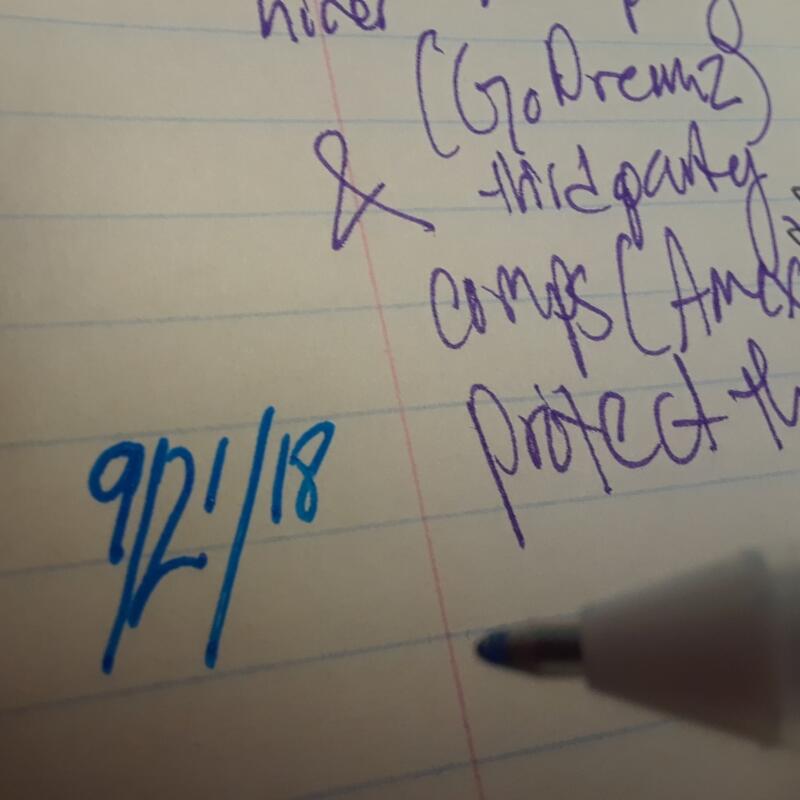 (GoDreamz)
& third party
comps (Amex
protect th
9/21/18